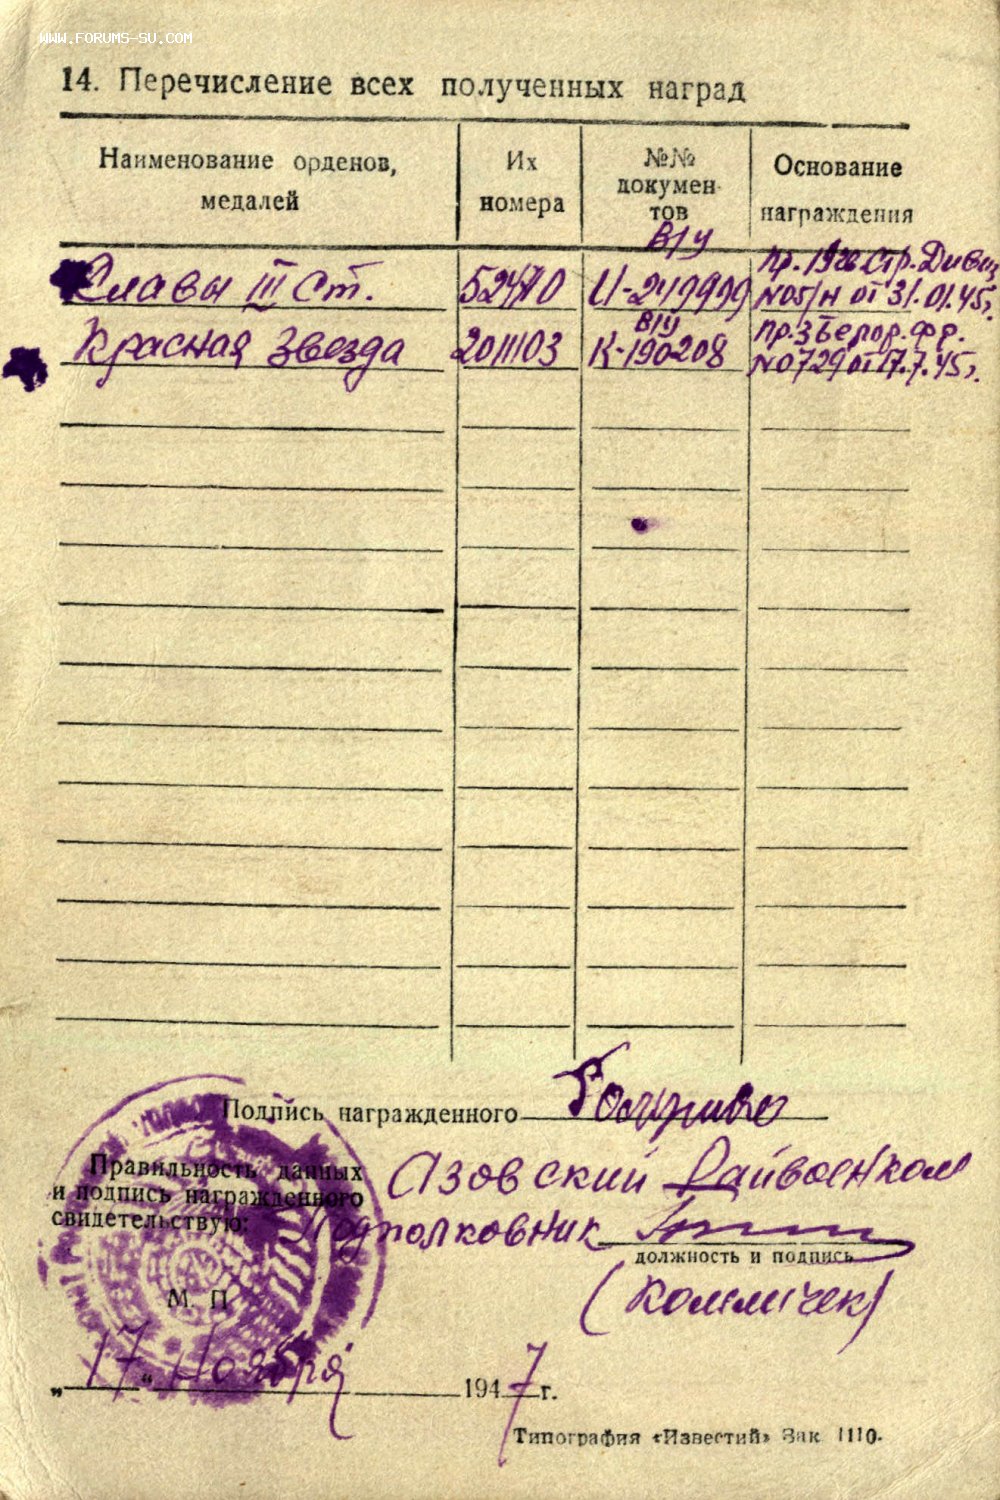 WWW.FORUMS-SU.COM
14. Перечисление всех полученных наград
Наименование орденов, медалей
Их номера
№№ документов
Основание награждения
Славы III Ст.
В/у
И-249999
Пр. стр. Дивиз
№05/н от 31.01.45г.
Красная Звезда
201103
В/у
К-190208
Пр. 3 Белор. фр.
№0729 от 17.7.45г.
Подпись награжденного
Правильность данных
и подпись награжденного
свидетельствую:
Азовский Райвоенком
Подполковник
должность и подпись
М. П
„17“ Ноября 1947 г.
Типография «Известий» Зак 1110.